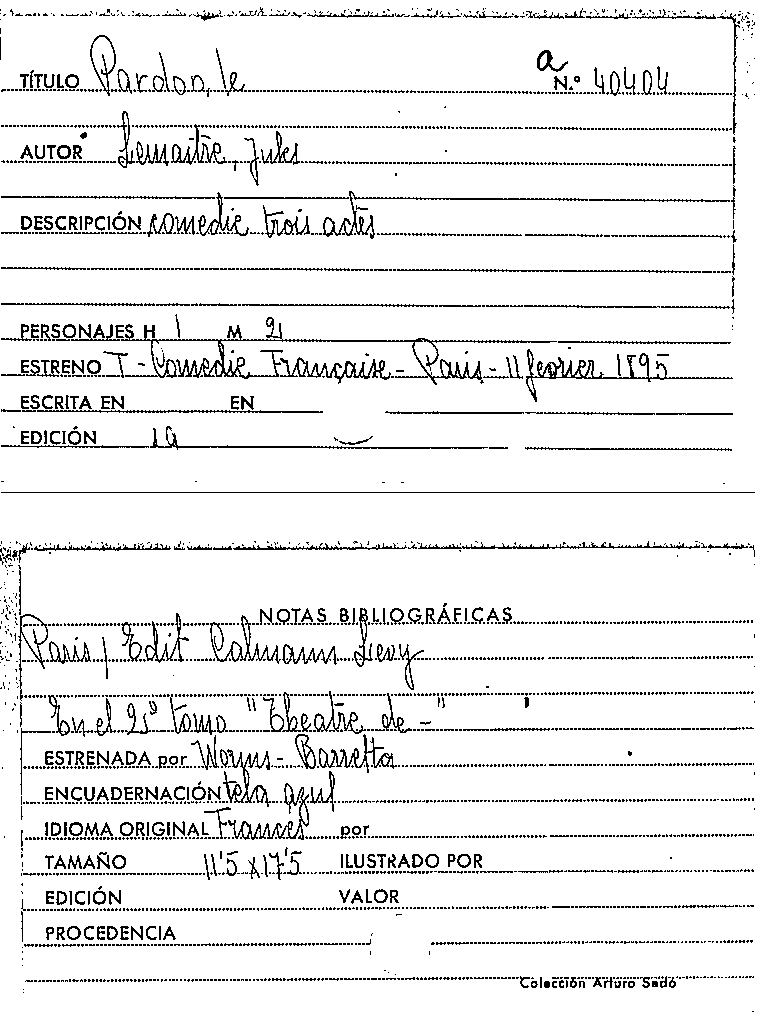 a
TÍTULO Pardon, le N.º 40404
AUTOR Lemaitre, Jules
DESCRIPCIÓN comedie trois actes
PERSONAJES H 1 M 2
ESTRENO T - Comedie Française - Paris - 11 fevrier 1895
ESCRITA EN EN
EDICIÓN 1a
NOTAS BIBLIOGRÁFICAS
Paris / Edit Calmann Levy
En el 2º tomo "Theatre de -"
ESTRENADA por Worms - Barretta
ENCUADERNACIÓN tela azul
IDIOMA ORIGINAL Francés por
TAMAÑO 11'5 x 17'5 ILUSTRADO POR
EDICIÓN VALOR
PROCEDENCIA
Colección Arturo Sedó